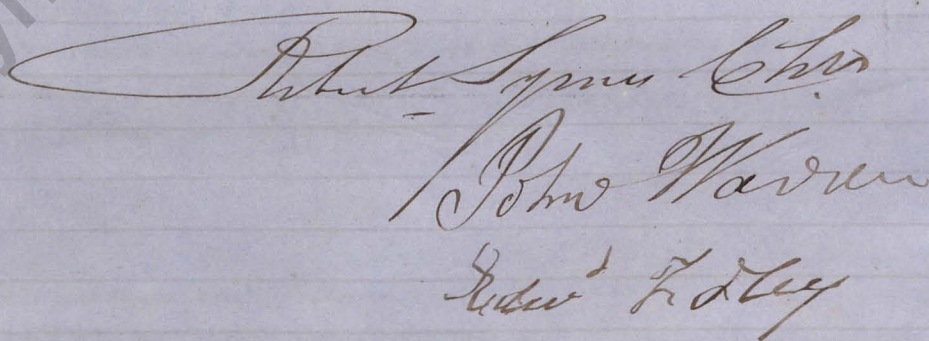 Robert Symes Chrs
John Warren
Edwd